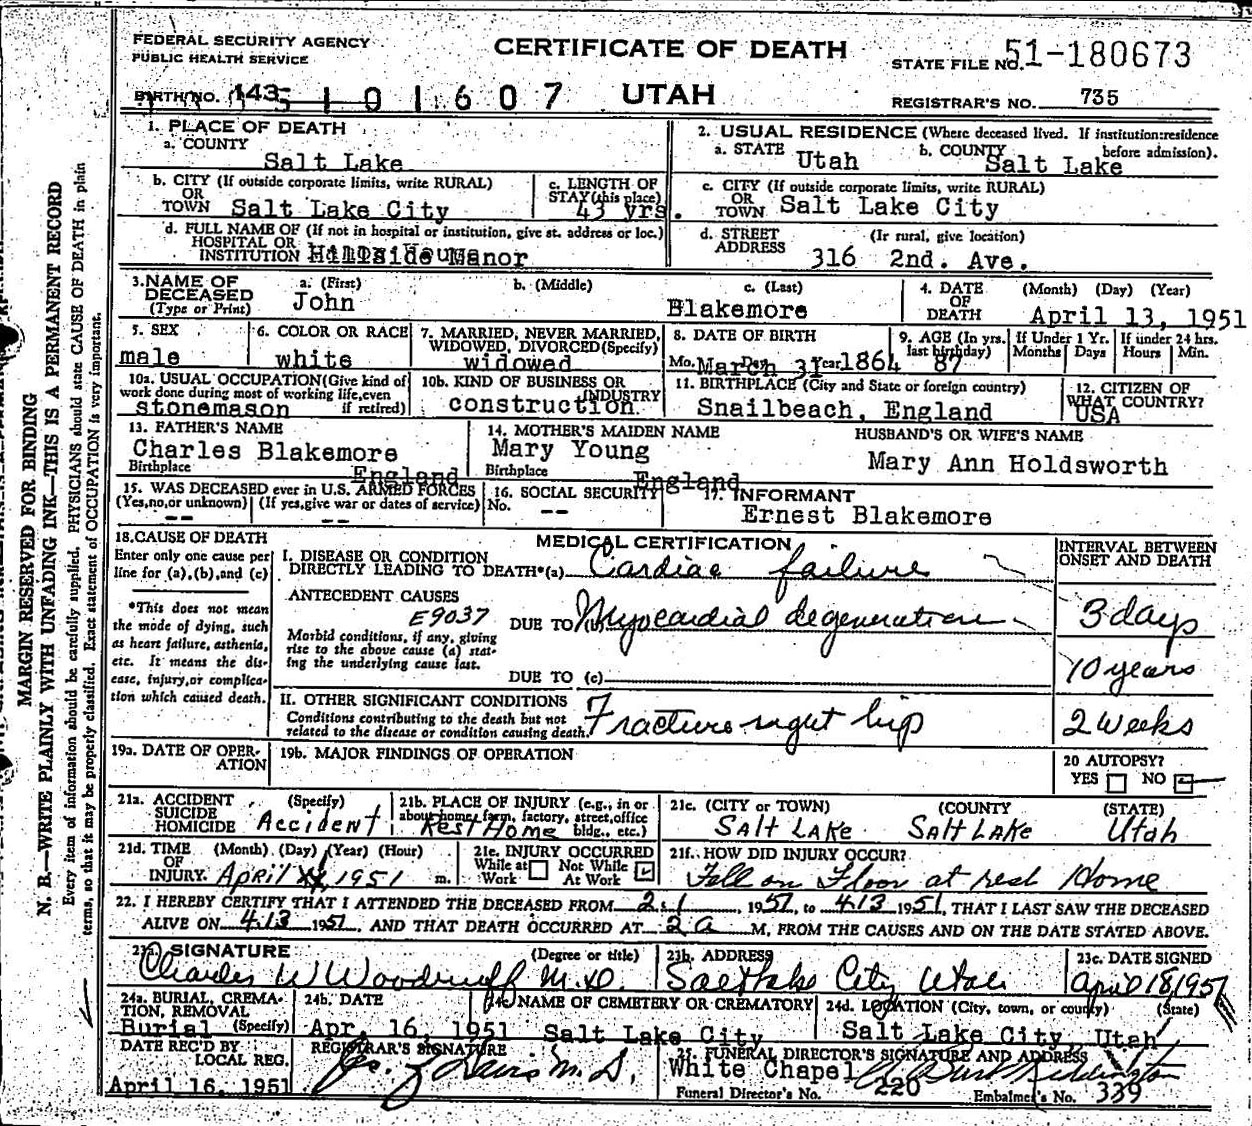 FEDERAL SECURITY AGENCY
PUBLIC HEALTH SERVICE
CERTIFICATE OF DEATH
STATE FILE NO. 51-180673
BIRTH NO. 143 101607
UTAH
REGISTRAR'S NO. 735
MARGIN RESERVED FOR BINDING
N. B.—WRITE PLAINLY WITH UNFADING INK—THIS IS A PERMANENT RECORD
Every item of information should be carefully supplied. PHYSICIANS should state CAUSE OF DEATH in plain
terms, so that it may be properly classified. Exact statement of OCCUPATION is very important.
1. PLACE OF DEATH
a. COUNTY
Salt Lake
2. USUAL RESIDENCE (Where deceased lived. If institution:residence before admission).
a. STATE Utah b. COUNTY Salt Lake
b. CITY (If outside corporate limits, write RURAL)
OR
TOWN Salt Lake City
c. LENGTH OF
STAY (this place)
43 yrs.
c. CITY (If outside corporate limits, write RURAL)
OR
TOWN Salt Lake City
d. FULL NAME OF (If not in hospital or institution, give st. address or loc.)
HOSPITAL OR
INSTITUTION Manor
d. STREET (If rural, give location)
ADDRESS 316 2nd. Ave.
3. NAME OF
DECEASED
(Type or Print)
a. (First) b. (Middle) c. (Last)
John Blakemore
4. DATE (Month) (Day) (Year)
OF
DEATH April 13, 1951
5. SEX
male
6. COLOR OR RACE
white
7. MARRIED, NEVER MARRIED,
WIDOWED, DIVORCED (Specify)
widowed
8. DATE OF BIRTH
Mo. Day Year
March 31 1864
9. AGE (In yrs.
last birthday)
87
If Under 1 Yr.
Months Days
If under 24 hrs.
Hours Min.
10a. USUAL OCCUPATION (Give kind of
work done during most of working life, even
if retired)
stonemason
10b. KIND OF BUSINESS OR
INDUSTRY
construction
11. BIRTHPLACE (City and State or foreign country)
Snailbeach, England
12. CITIZEN OF
WHAT COUNTRY?
USA
13. FATHER'S NAME
Charles Blakemore
Birthplace England
14. MOTHER'S MAIDEN NAME
Mary Young
Birthplace England
HUSBAND'S OR WIFE'S NAME
Mary Ann Holdsworth
15. WAS DECEASED ever in U.S. ARMED FORCES
(Yes, no, or unknown) (If yes, give war or dates of service)
-- --
16. SOCIAL SECURITY
No. --
17. INFORMANT
Ernest Blakemore
18. CAUSE OF DEATH
Enter only one cause per
line for (a), (b), and (c)
MEDICAL CERTIFICATION
INTERVAL BETWEEN
ONSET AND DEATH
I. DISEASE OR CONDITION
DIRECTLY LEADING TO DEATH*(a) Cardiac failure
ANTECEDENT CAUSES
E9037
DUE TO (b) Myocardial degeneration
3 days
Morbid conditions, if any, giving
rise to the above cause (a) stat-
ing the underlying cause last.
10 years
DUE TO (c)
*This does not mean
the mode of dying, such
as heart failure, asthenia,
etc. It means the dis-
ease, injury, or complica-
tion which caused death.
II. OTHER SIGNIFICANT CONDITIONS
Conditions contributing to the death but not
related to the disease or condition causing death.
Fracture right hip
2 weeks
19a. DATE OF OPER-
ATION
19b. MAJOR FINDINGS OF OPERATION
20 AUTOPSY?
YES NO
21a. ACCIDENT (Specify)
SUICIDE
HOMICIDE Accident
21b. PLACE OF INJURY (e.g., in or
about home, farm, factory, street, office
bldg., etc.)
Rest Home
21c. (CITY or TOWN) (COUNTY (STATE)
Salt Lake Salt Lake Utah
21d. TIME (Month) (Day) (Year) (Hour)
OF
INJURY. April 1951 m.
21e. INJURY OCCURRED
While at Work
Not While At Work
21f. HOW DID INJURY OCCUR?
Fell on Floor at rest Home
22. I HEREBY CERTIFY THAT I ATTENDED THE DECEASED FROM 2-1, 1951, to 4-13 1951, THAT I LAST SAW THE DECEASED
ALIVE ON 4-13 1951, AND THAT DEATH OCCURRED AT 2 a M, FROM THE CAUSES AND ON THE DATE STATED ABOVE.
23a. SIGNATURE (Degree or title)
Charles W Woodruff M.D.
23b. ADDRESS
Salt Lake City Utah
23c. DATE SIGNED
April 18, 1951
24a. BURIAL, CREMA-
TION, REMOVAL
(Specify)
Burial
24b. DATE
Apr. 16, 1951
24c. NAME OF CEMETERY OR CREMATORY
Salt Lake City
24d. LOCATION (City, town, or county) (State)
Salt Lake City, Utah
DATE REC'D BY
LOCAL REG.
April 16, 1951
REGISTRAR'S SIGNATURE
M. D.
25. FUNERAL DIRECTOR'S SIGNATURE AND ADDRESS
White Chapel
Funeral Director's No. 220 Embalmer's No. 339